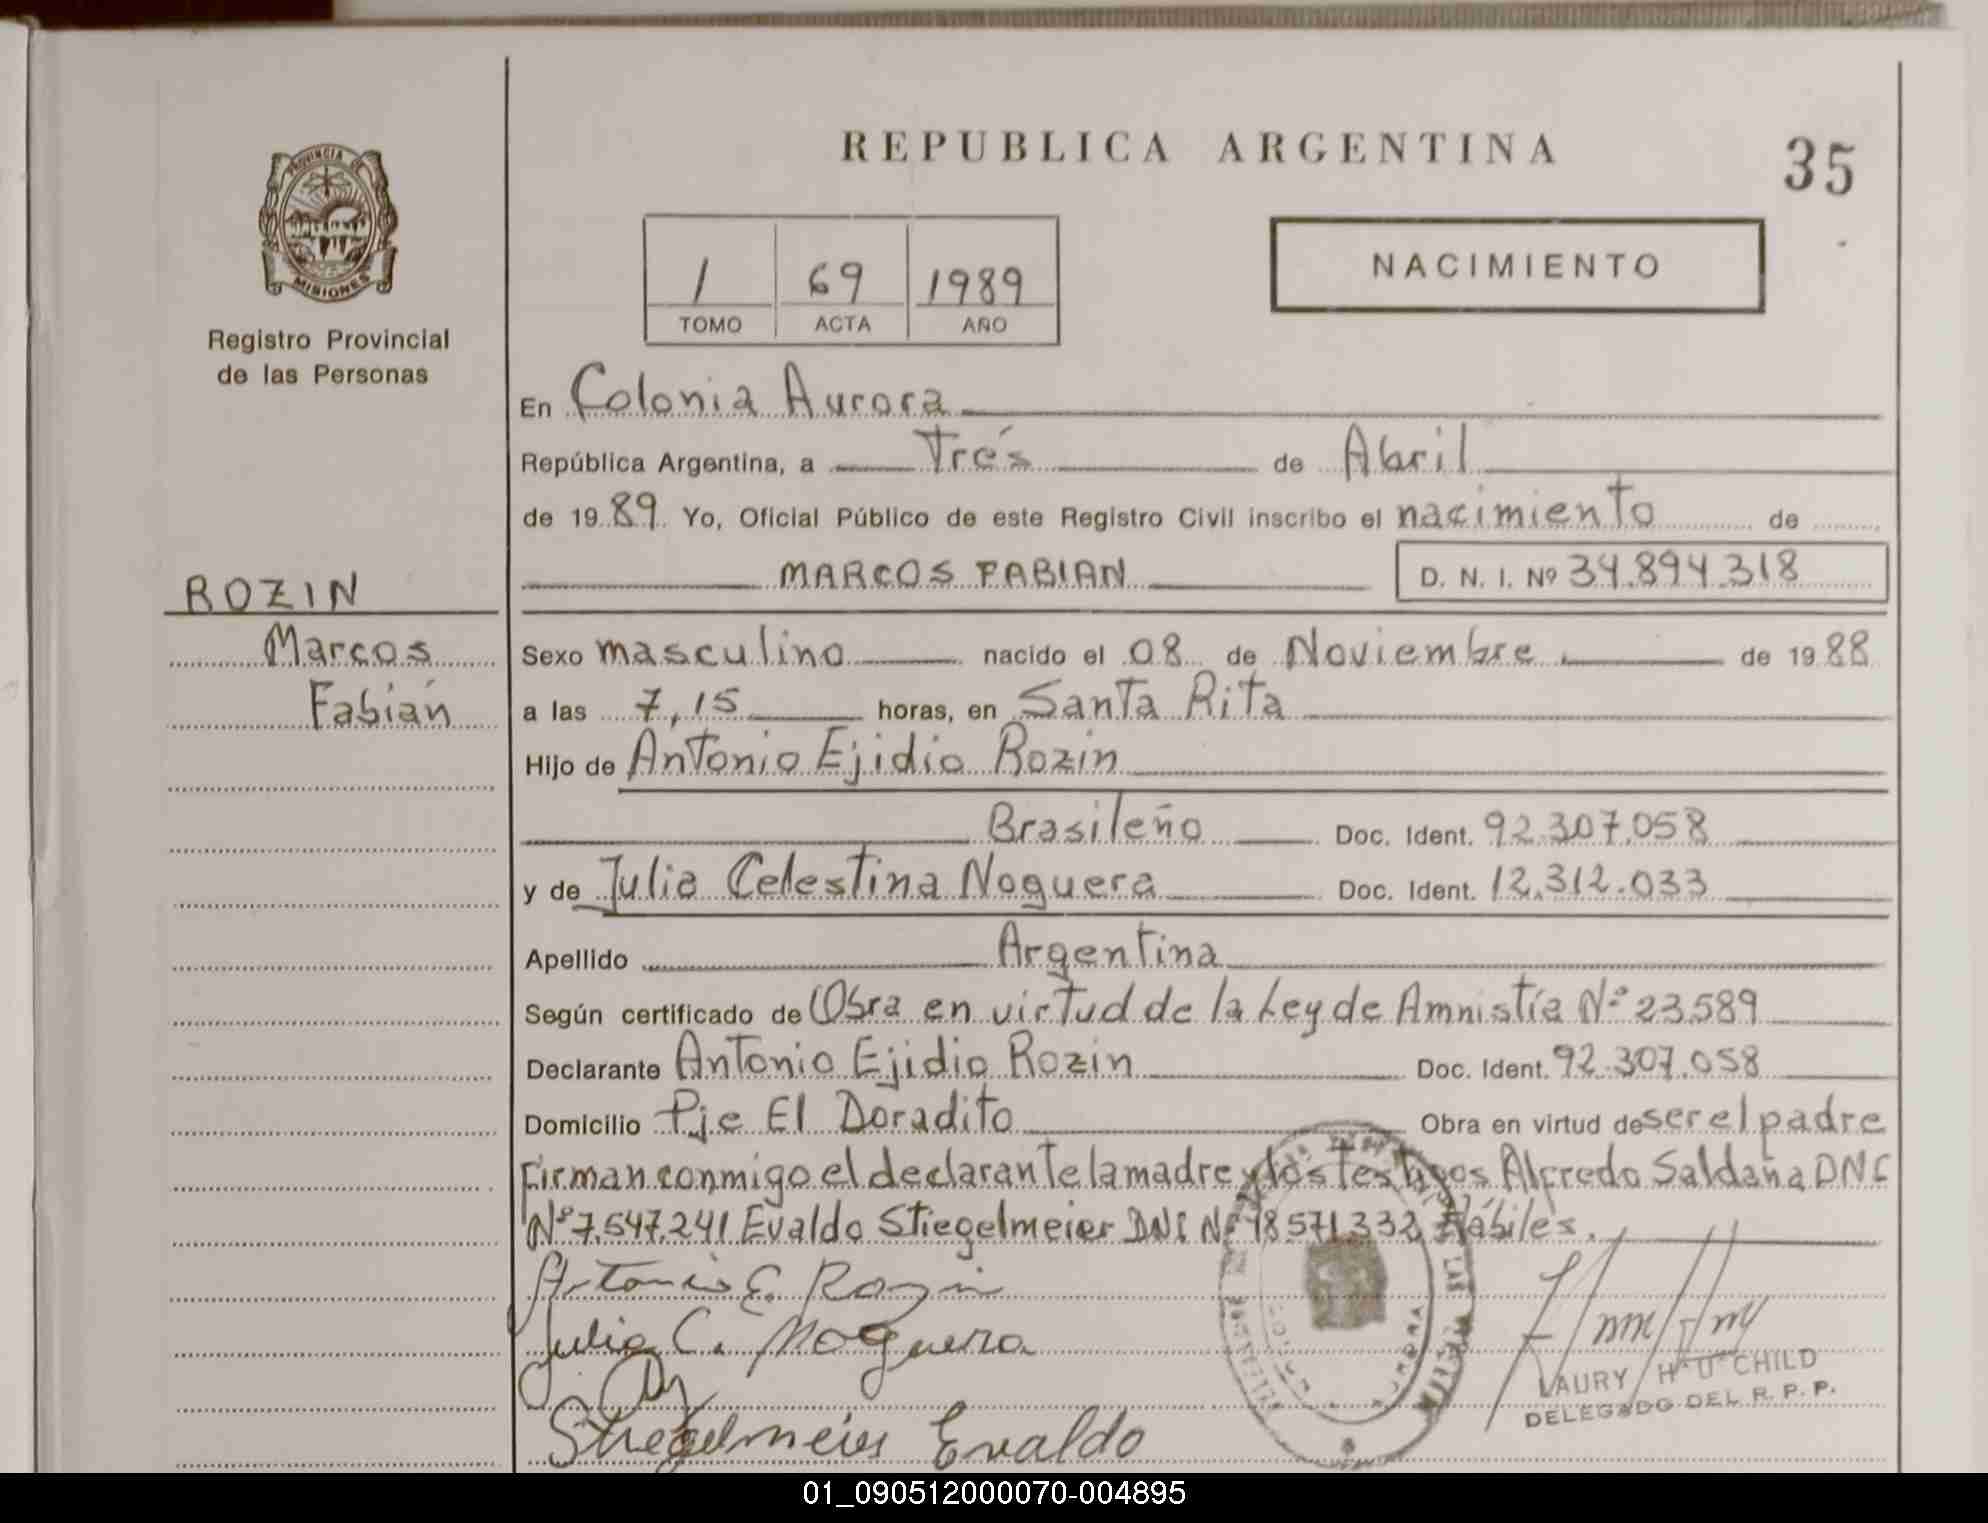 REPUBLICA ARGENTINA
35
PROVINCIA DE
MISIONES
Registro Provincial
de las Personas
1 69 1989
TOMO ACTA AÑO
NACIMIENTO
En Colonia Aurora
República Argentina, a Trés de Abril
de 1989 Yo, Oficial Público de este Registro Civil inscribo el nacimiento de
MARCOS FABIAN D. N. I. Nº 34.894.318
ROZIN
Marcos
Fabián
Sexo masculino nacido el 08 de Noviembre de 1988
a las 7,15 horas, en Santa Rita
Hijo de Antonio Ejidio Rozin
Brasileño Doc. Ident. 92.307.058
y de Julia Celestina Noguera Doc. Ident. 12.312.033
Apellido Argentina
Según certificado de Obra en virtud de la Ley de Amnistía Nº 23.589
Declarante Antonio Ejidio Rozin Doc. Ident. 92.307.058
Domicilio Pje El Doradito Obra en virtud de ser el padre
Firman conmigo el declarante la madre y los testigos Alfredo Saldaña DNI
Nº 7.547.241 Evaldo Stiegelmeier DNI Nº 18.571.332 Hábiles.
Antonio E. Rozin
Julia C. Noguera
Stiegelmeier Evaldo
LAURY CHILD
DELEGADO DEL R. P. P.
AURORA
01_090512000070-004895